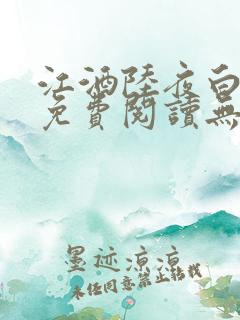 江酒陸夜白
免費閱讀無
墨迹凉凉
未经同意禁止转载